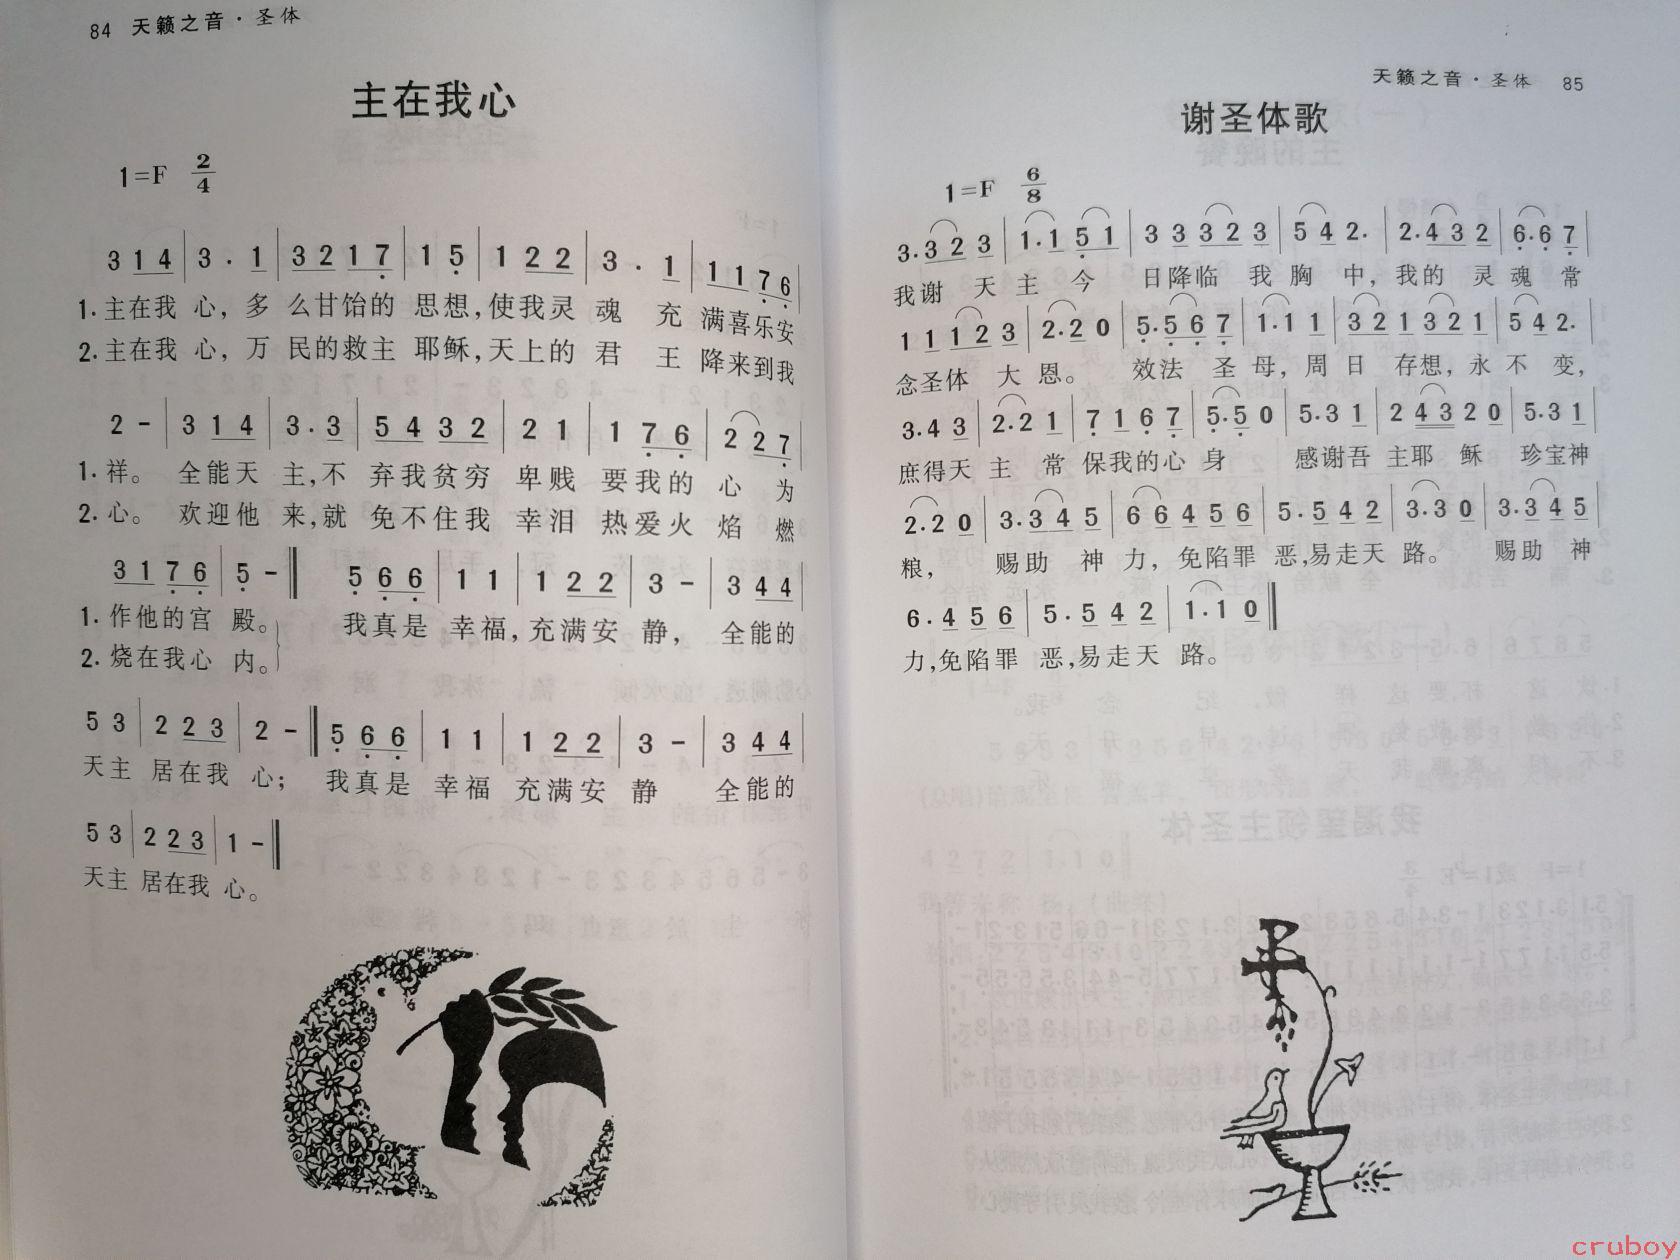 84 天籁之音·圣体
主在我心
1=F 2/4
3 1 4 | 3 . 1 | 3 2 1 7 | 1 5 | 1 2 2 | 3 . 1 | 1 1 7 6 |
1. 主在我 心, 多 么甘饴的 思想, 使我灵 魂 充 满喜乐安
2. 主在我 心, 万 民的救主 耶稣, 天上的 君 王 降来到我
2 - | 3 1 4 | 3 . 3 | 5 4 3 2 | 2 1 | 1 7 6 | 2 2 7 |
1. 祥。 全能天 主, 不 弃我贫穷 卑贱 要我的 心 为
2. 心。 欢迎他 来, 就 免不住我 幸泪 热爱火 焰 燃
3 1 7 6 | 5 - ‖ 5 6 6 | 1 1 | 1 2 2 | 3 - | 3 4 4 |
1. 作他的宫 殿。 我真是 幸福, 充满安 静, 全能的
2. 烧在我心 内。
5 3 | 2 2 3 | 2 - ‖ 5 6 6 | 1 1 | 1 2 2 | 3 - | 3 4 4 |
天主 居在我 心; 我真是 幸福 充满安 静 全能的
5 3 | 2 2 3 | 1 - ‖
天主 居在我 心。
天籁之音·圣体 85
谢圣体歌
1=F 6/8
3. 3 2 3 | 1. 1 5 1 | 3 3 3 2 3 | 5 4 2. | 2. 4 3 2 | 6. 6 7 |
我谢 天 主 今 日降临 我 胸 中, 我的 灵 魂 常
1 1 1 2 3 | 2. 2 0 | 5. 5 6 7 | 1. 1 1 | 3 2 1 3 2 1 | 5 4 2. |
念圣体 大 恩。 效法 圣 母, 周 日 存想, 永 不 变,
3. 4 3 | 2. 2 1 | 7 1 6 7 | 5. 5 0 | 5. 3 1 | 2 4 3 2 0 | 5. 3 1 |
庶得天 主 常 保我的心 身 感谢吾 主耶 稣 珍宝神
2. 2 0 | 3. 3 4 5 | 6 6 4 5 6 | 5. 5 4 2 | 3. 3 0 | 3. 3 4 5 |
粮, 赐助 神 力, 免陷罪 恶, 易走天 路。 赐助 神
6. 4 5 6 | 5. 5 4 2 | 1. 1 0 ‖
力, 免陷罪 恶, 易走天 路。
cruboy